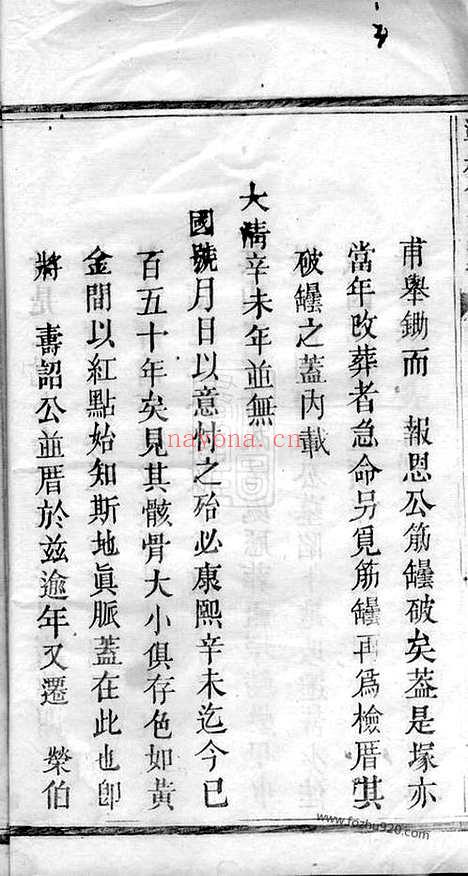 甫舉鋤而　報恩公筋罐破矣葢是塚亦
當年改葬者急命另覓筋罐再爲檢厝其
破罐之蓋內載
大淸辛未年並無
國號月日以意忖之殆必康熙辛未迄今已
百五十年矣見其骸骨大小俱存色如黃
金間以紅點始知斯地眞脈蓋在此也卽
將　壽詔公並厝於兹逾年又遷　榮伯
nayona.cn
www.fozhu920.com